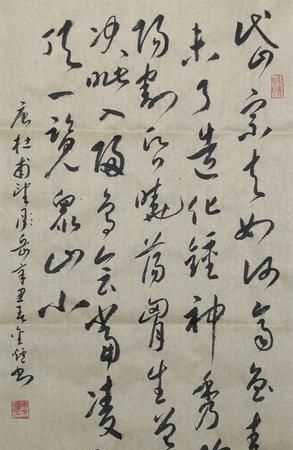 岱宗夫如何齊魯青
未了造化鍾神秀陰
陽割昏曉蕩胸生曾
決眥入歸鳥會當凌
頂一覽眾山小
唐杜甫望嶽辛丑春書